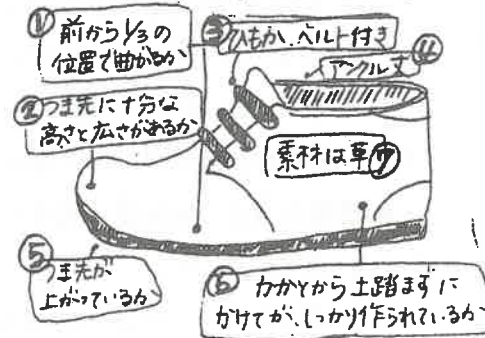 ① 前から1/3の
位置で曲がるか
② つま先に十分な
高さと広さがあるか
③ ひもか、ベルト付き
④ アンクル丈
素材は革 ⑦
⑤ つま先が
上がっているか
⑥ かかとから土踏まずに
かけてが、しっかり作られているか